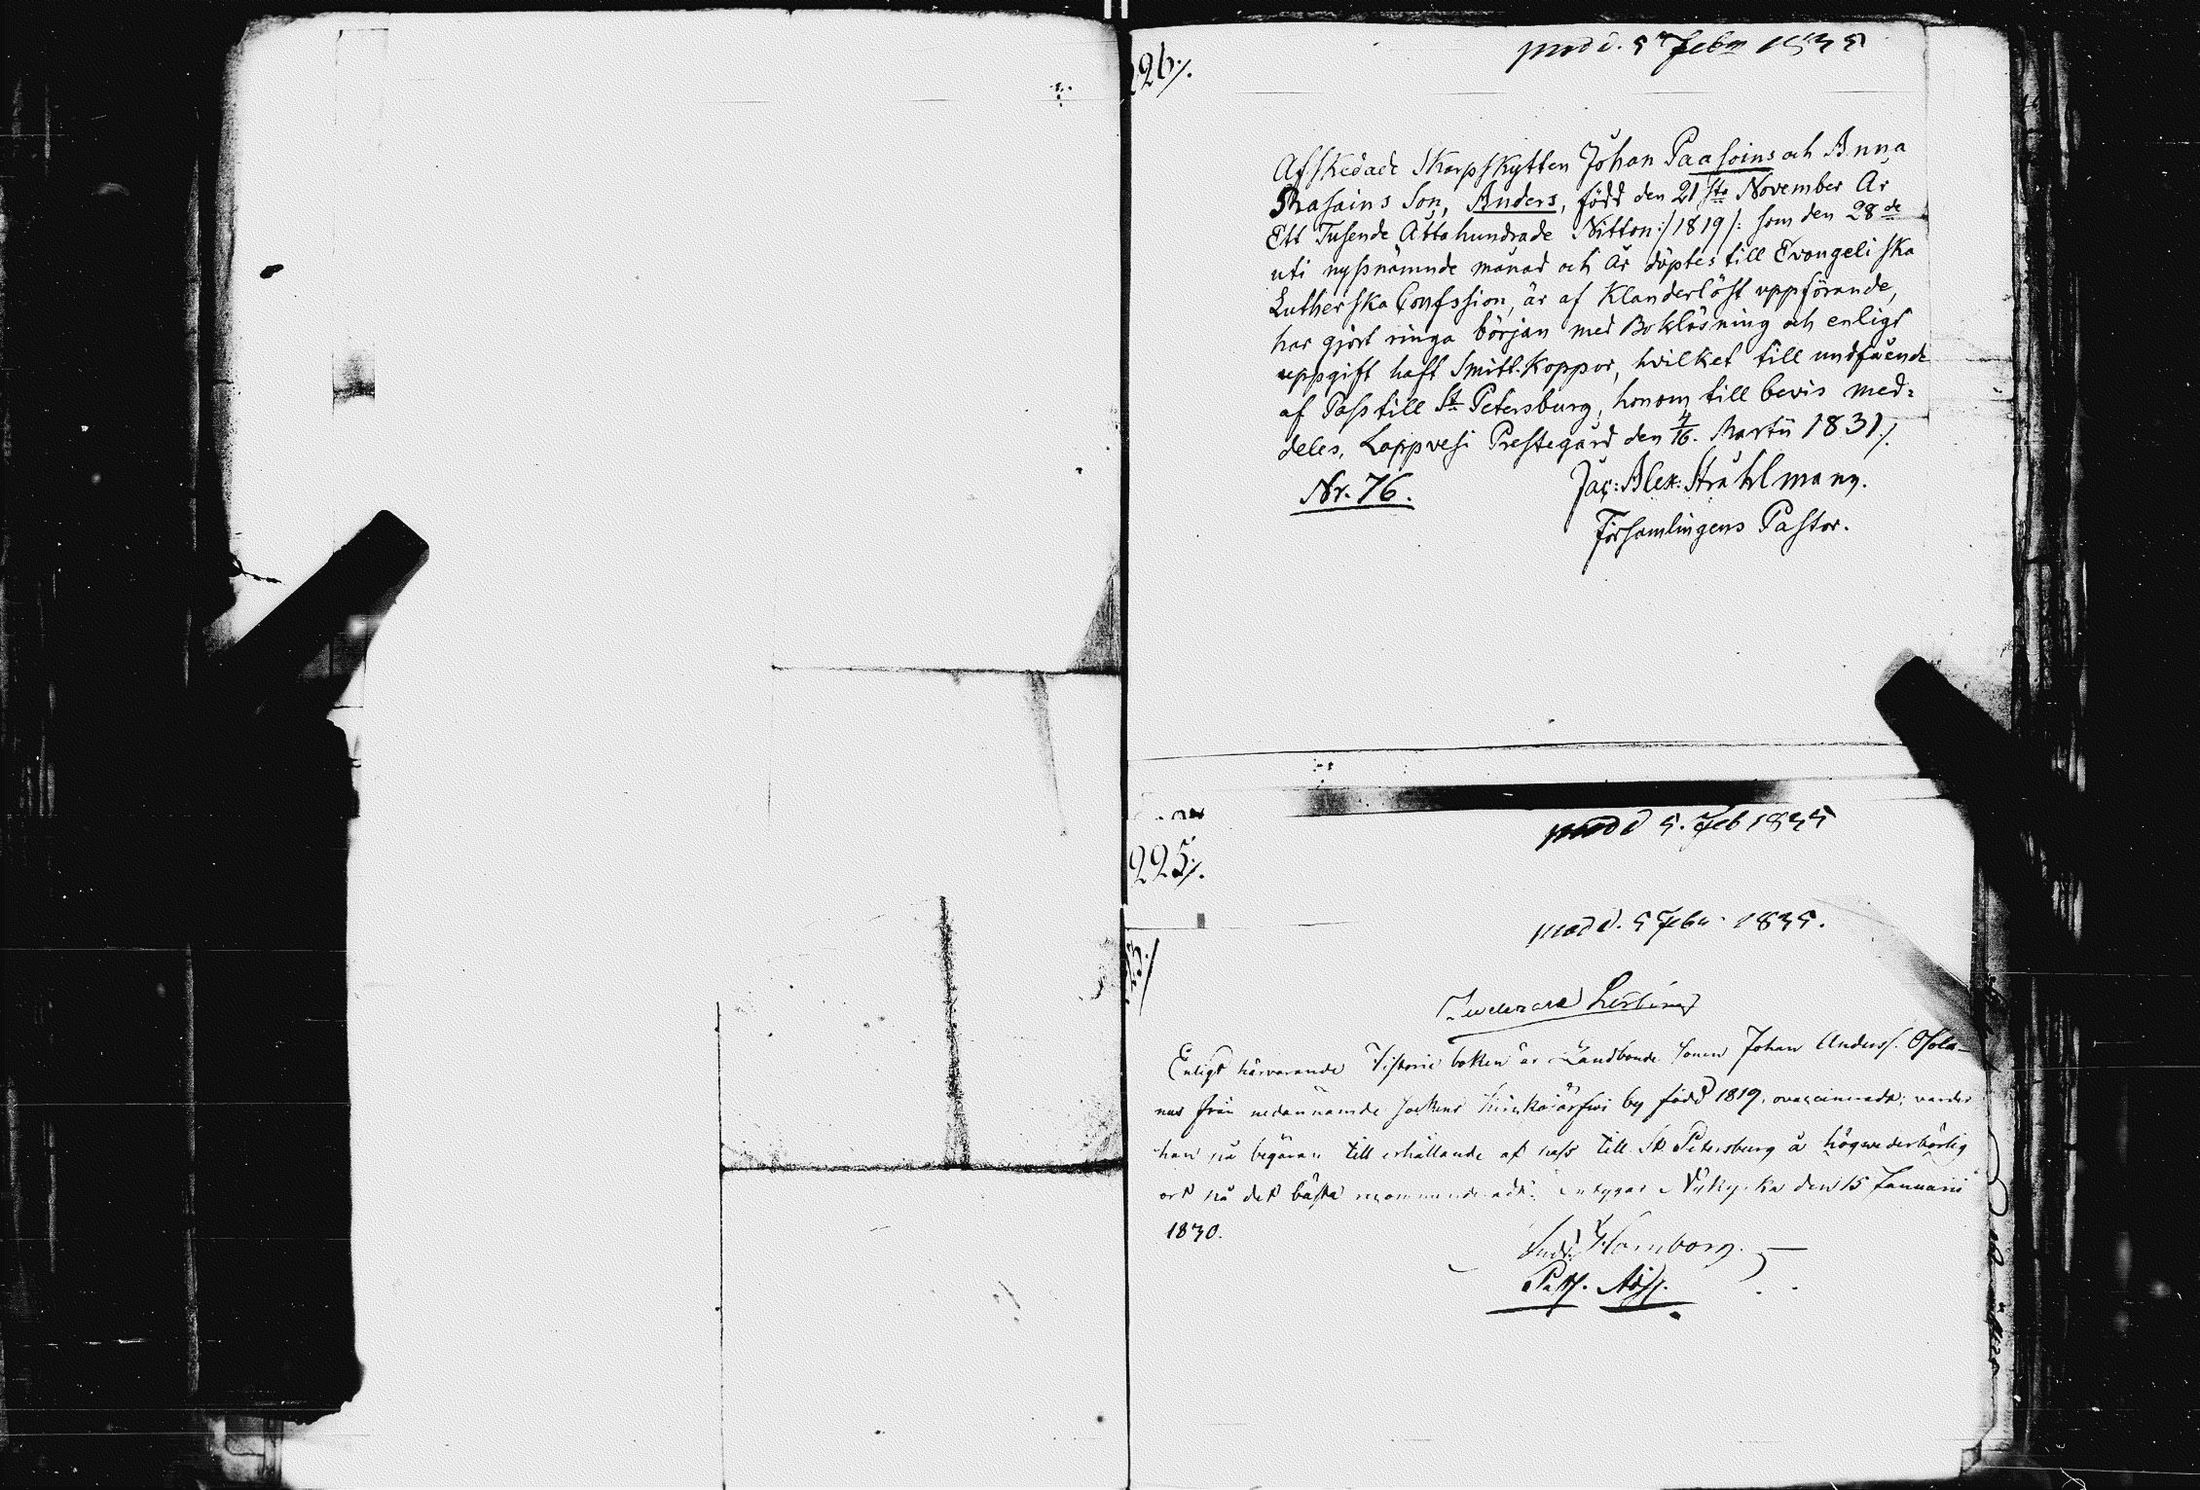 226./.
prod d. 5 Febr 1835
Afskedade Skarpskytten Johan Paasoins och Anna
Rasains Son, Anders, född den 21ste November År
Ett Tusende Åttahundrade Nitton :/1819/: som den 28de
uti nyssnämnde månad och År döptes till Evangeliska
Lutherska Confssion, är af Klanderlöst uppförande,
har gjort ringa början med Boklösning och enligt
uppgift haft Smitt-Koppor, hvilket till undfående
af Pass till St Petersburg, honom till bevis med=
deles, Lappvesi Prestegård den 4/16. Martii 1831./.
Nr. 76.
Jac: Alex: Stråhlmann.
Församlingens Pastor.
prod d 5. Feb 1835
225./.
prod d. 5 Febr 1835.
Enligt härvarande Historie boken är Landbonde sonen Johan Anderss.
från nedannämde sockens by född 1819, ovaccinerade; varder
han på begäran till erhållande af pass till St Petersburg å högvederbörlig
ort på det bästa recommenderadt; intygar Nykyrka den 15 Januarii
1830.
Hornborg.
Past. Adj.